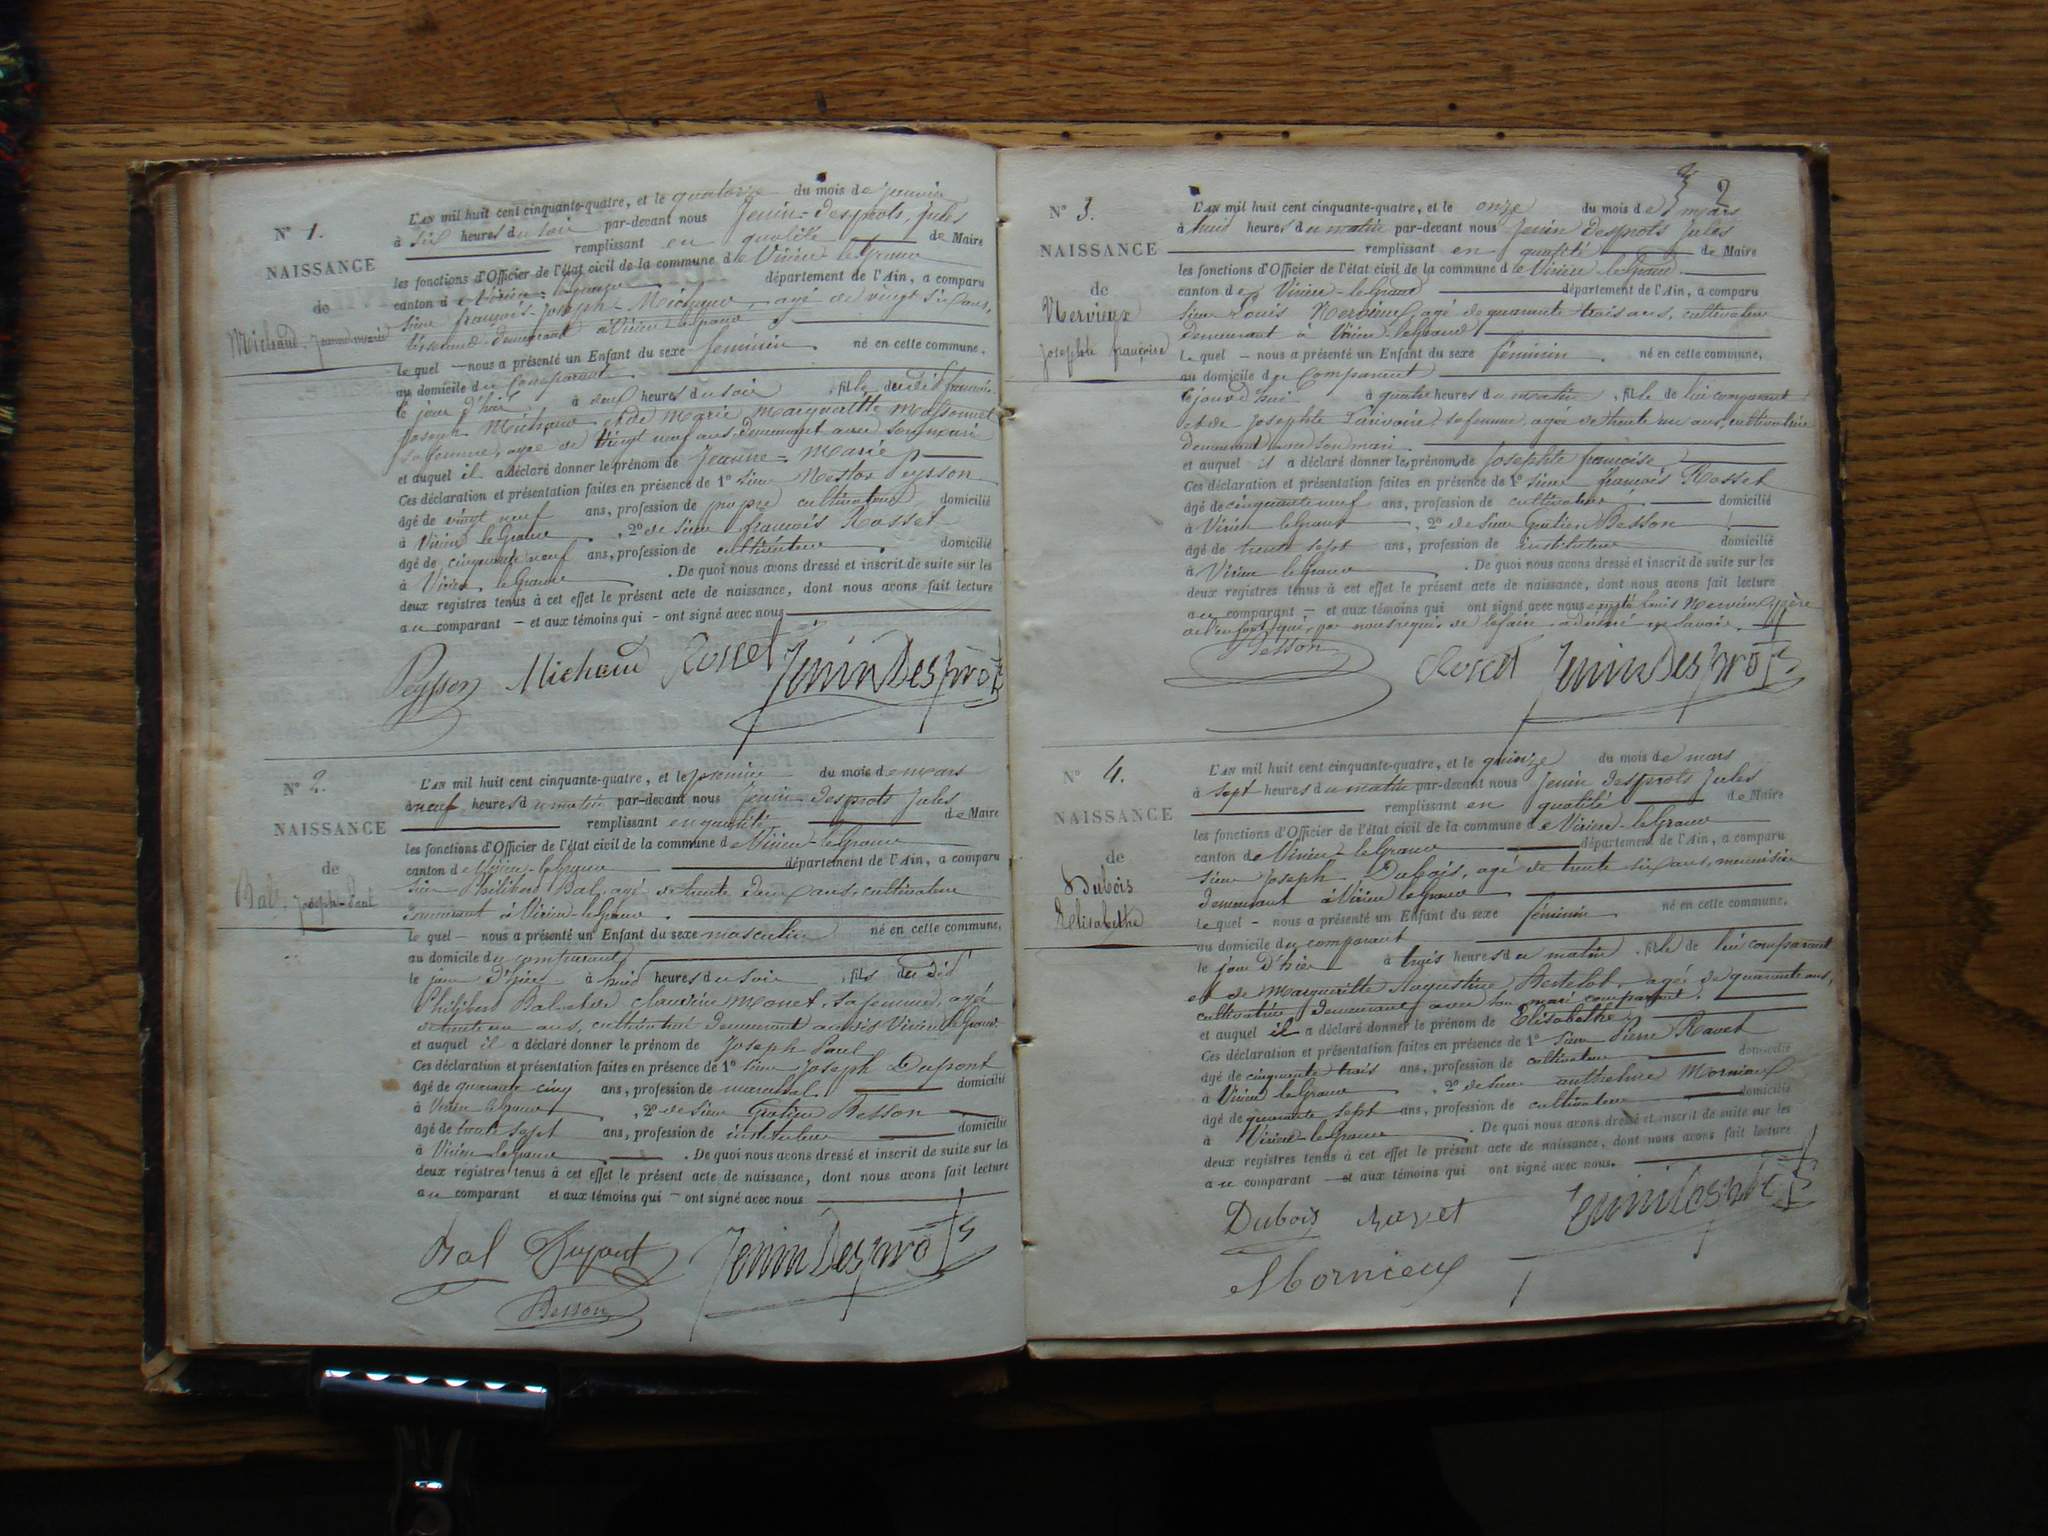 N° 1.
NAISSANCE
de
Michaud Jeanne marie
L'AN mil huit cent cinquante-quatre, et le quatorze du mois de janvier
à six heures du soir par-devant nous Jenin-Desprots, Jules
remplissant en qualité de Maire
les fonctions d'Officier de l'état civil de la commune de Virieu le Grand
canton de Virieu-le-grand département de l'Ain, a comparu
sieur françois-Joseph-Michaud, agé de vingt six ans,
demeurant à Virieu-le-grand
le quel nous a présenté un Enfant du sexe feminin né en cette commune,
au domicile du Comparant
le jour d'hier à heures du soir , fille dudit françois
Joseph Michaud et de Marie Marguerithe Massonnet
sa femme, agée de Vingt neuf ans, demeurant avec son mari
et auquel il a déclaré donner le prénom de Jeanne-Marie
Ces déclaration et présentation faites en présence de 1° sieur Peysson
âgé de vingt neuf ans, profession de cultivateur domicilié
à Virieu le Grand , 2° de sieur françois Rosset
âgé de cinquante neuf ans, profession de cultivateur domicilié
à Virieu le Grand . De quoi nous avons dressé et inscrit de suite sur les
deux registres tenus à cet effet le présent acte de naissance, dont nous avons fait lecture
au comparant et aux témoins qui ont signé avec nous
Peysson Michaud Rosset Jenin Desprots
N° 2.
NAISSANCE
de
Bal, Joseph-Paul
L'AN mil huit cent cinquante-quatre, et le premier du mois de mars
à neuf heures du matin par-devant nous Jenin-Desprots Jules
remplissant en qualité de Maire
les fonctions d'Officier de l'état civil de la commune de Virieu-le-Grand
canton de Virieu-le-Grand département de l'Ain, a comparu
sieur Philibert Bal, agé de trente deux ans, cultivateur
demeurant à Virieu-le-Grand.
le quel nous a présenté un Enfant du sexe masculin né en cette commune,
au domicile du comparant
le jour d'hier à huit heures du soir , fils du dit
Philibert Bal et de claudine Monet, sa femme, agée
de trente un ans, cultivatrice demeurant Virieu le Grand.
et auquel il a déclaré donner le prénom de Joseph Paul
Ces déclaration et présentation faites en présence de 1° sieur Joseph Dupont
âgé de quarante cinq ans, profession de marechal domicilié
à Virieu le Grand , 2° de sieur Gratien Besson
âgé de trente sept ans, profession de instituteur domicilié
à Virieu le Grand . De quoi nous avons dressé et inscrit de suite sur les
deux registres tenus à cet effet le présent acte de naissance, dont nous avons fait lecture
au comparant et aux témoins qui ont signé avec nous
Bal Dupont Jenin Desprots
Besson
2
N° 3.
NAISSANCE
de
Nervieux
Josephte françoise
L'AN mil huit cent cinquante-quatre, et le onze du mois de mars
à huit heures du matin par-devant nous Jenin Desprots Jules
remplissant en qualité de Maire
les fonctions d'Officier de l'état civil de la commune de Virieu-le-Grand
canton de Virieu-le-Grand département de l'Ain, a comparu
sieur Louis Nervieux, agé de quarante trois ans, cultivateur
demeurant à Virieu-le-Grand
le quel nous a présenté un Enfant du sexe féminin né en cette commune,
au domicile du Comparant
à quatre heures du matin , fille de lui comparant
et de Josephte Larivoire, sa femme, agée de trente un ans, cultivatrice
demeurant avec son mari
et auquel il a déclaré donner les prénoms de Josephte françoise
Ces déclaration et présentation faites en présence de 1° sieur françois Rosset
âgé de cinquante neuf ans, profession de cultivateur domicilié
à Virieu le Grand , 2° de sieur Gratien Besson
âgé de trente sept ans, profession de instituteur domicilié
à Virieu le Grand . De quoi nous avons dressé et inscrit de suite sur les
deux registres tenus à cet effet le présent acte de naissance, dont nous avons fait lecture
au comparant et aux témoins qui ont signé avec nous excepté Louis Nervieux père
de l'enfant qui, par nous requis de le faire a déclaré ne savoir.
Besson Rosset Jenin Desprots
N° 4.
NAISSANCE
de
Dubois
Elisabethe
L'AN mil huit cent cinquante-quatre, et le quinze du mois de mars
à sept heures du matin par-devant nous Jenin Desprots Jules
remplissant en qualité de Maire
les fonctions d'Officier de l'état civil de la commune de Virieu-le-Grand
canton de Virieu-le-Grand département de l'Ain, a comparu
sieur Joseph Dubois, agé de trente six ans, menuisier
demeurant à Virieu le Grand
le quel nous a présenté un Enfant du sexe féminin né en cette commune,
au domicile du comparant
le jour d'hier à trois heures du matin , fille de lui comparant
et de Marguerithe Augustine Bertelot, agée de quarante ans,
cultivatrice demeurant avec son mari comparant.
et auquel il a déclaré donner le prénom de Elisabethe
Ces déclaration et présentation faites en présence de 1° sieur Pierre Ravet
âgé de cinquante trois ans, profession de cultivateur domicilié
à Virieu le Grand , 2° de sieur anthelme Mornieux
âgé de quarante sept ans, profession de cultivateur domicilié
à Virieu-le-Grand . De quoi nous avons dressé et inscrit de suite sur les
deux registres tenus à cet effet le présent acte de naissance, dont nous avons fait lecture
au comparant et aux témoins qui ont signé avec nous.
Dubois Ravet Jenin Desprots
Mornieux